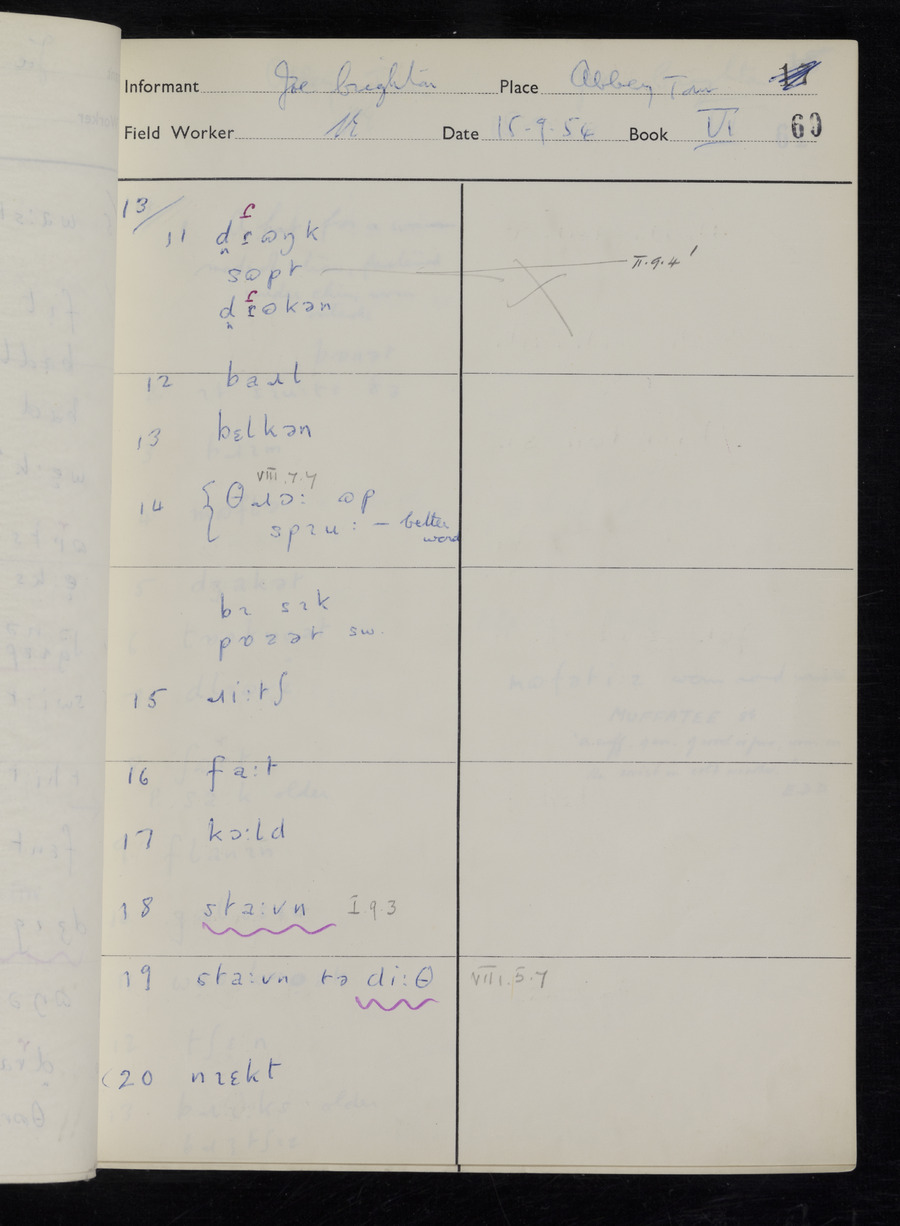 Informant Joe Brighton Place Abbey Town
Field Worker Date 15-9-54 Book VI 60
13/
11 d̪ɾɷŋk
sɷpt II.9.4'
d̪ɾɷkən
12 baɹt
13 bɛlkən
VIII.7.7
14 { θɹɔ: ɷp
spɪu: - better
word
bɪ sɪk
pɒzət sw.
15 ɹi:tʃ
16 fa:t
17 kɔ:ld
18 sta:vn I 9.3
19 sta:vn tə di:θ VIII.5.7
20 nɪɛkt